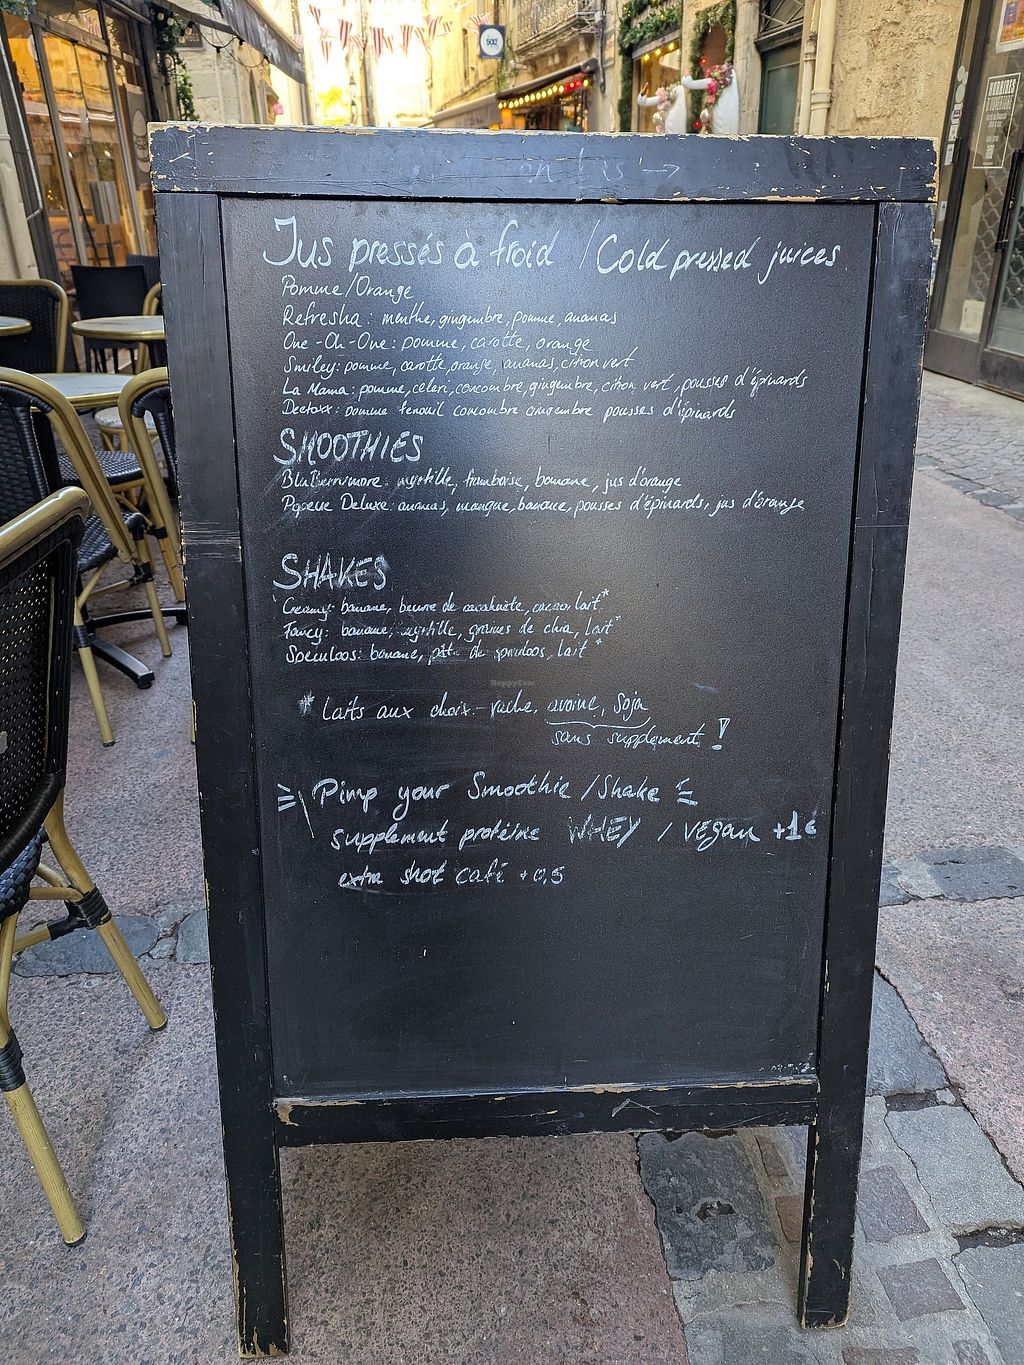 Jus pressés à froid / Cold pressed juices
Pomme/Orange
Refresha: menthe, gingembre, pomme, ananas
One-Oh-One: pomme, carotte, orange
Smiley: pomme, carotte, orange, ananas, citron vert
La Mama: pomme, céleri, concombre, gingembre, citron vert, pousses d'épinards
Deetoxx: pomme fenouil concombre gingembre pousses d'épinards
SMOOTHIES
myrtille, framboise, banane, jus d'orange
Popeye Deluxe: ananas, mangue, banane, pousses d'épinards, jus d'orange
SHAKES
Creamy: banane, beurre de cacahuète, cacao, lait*
Fancy: banane, myrtille, graines de chia, lait*
Speculoos: banane, pâte de speculoos, lait *
* Laits aux choix - vache, avoine, soja
sans supplement!
Pimp your Smoothie /Shake
supplement protéine WHEY / VEgan +1€
extra shot café +0,5
HappyCow
500